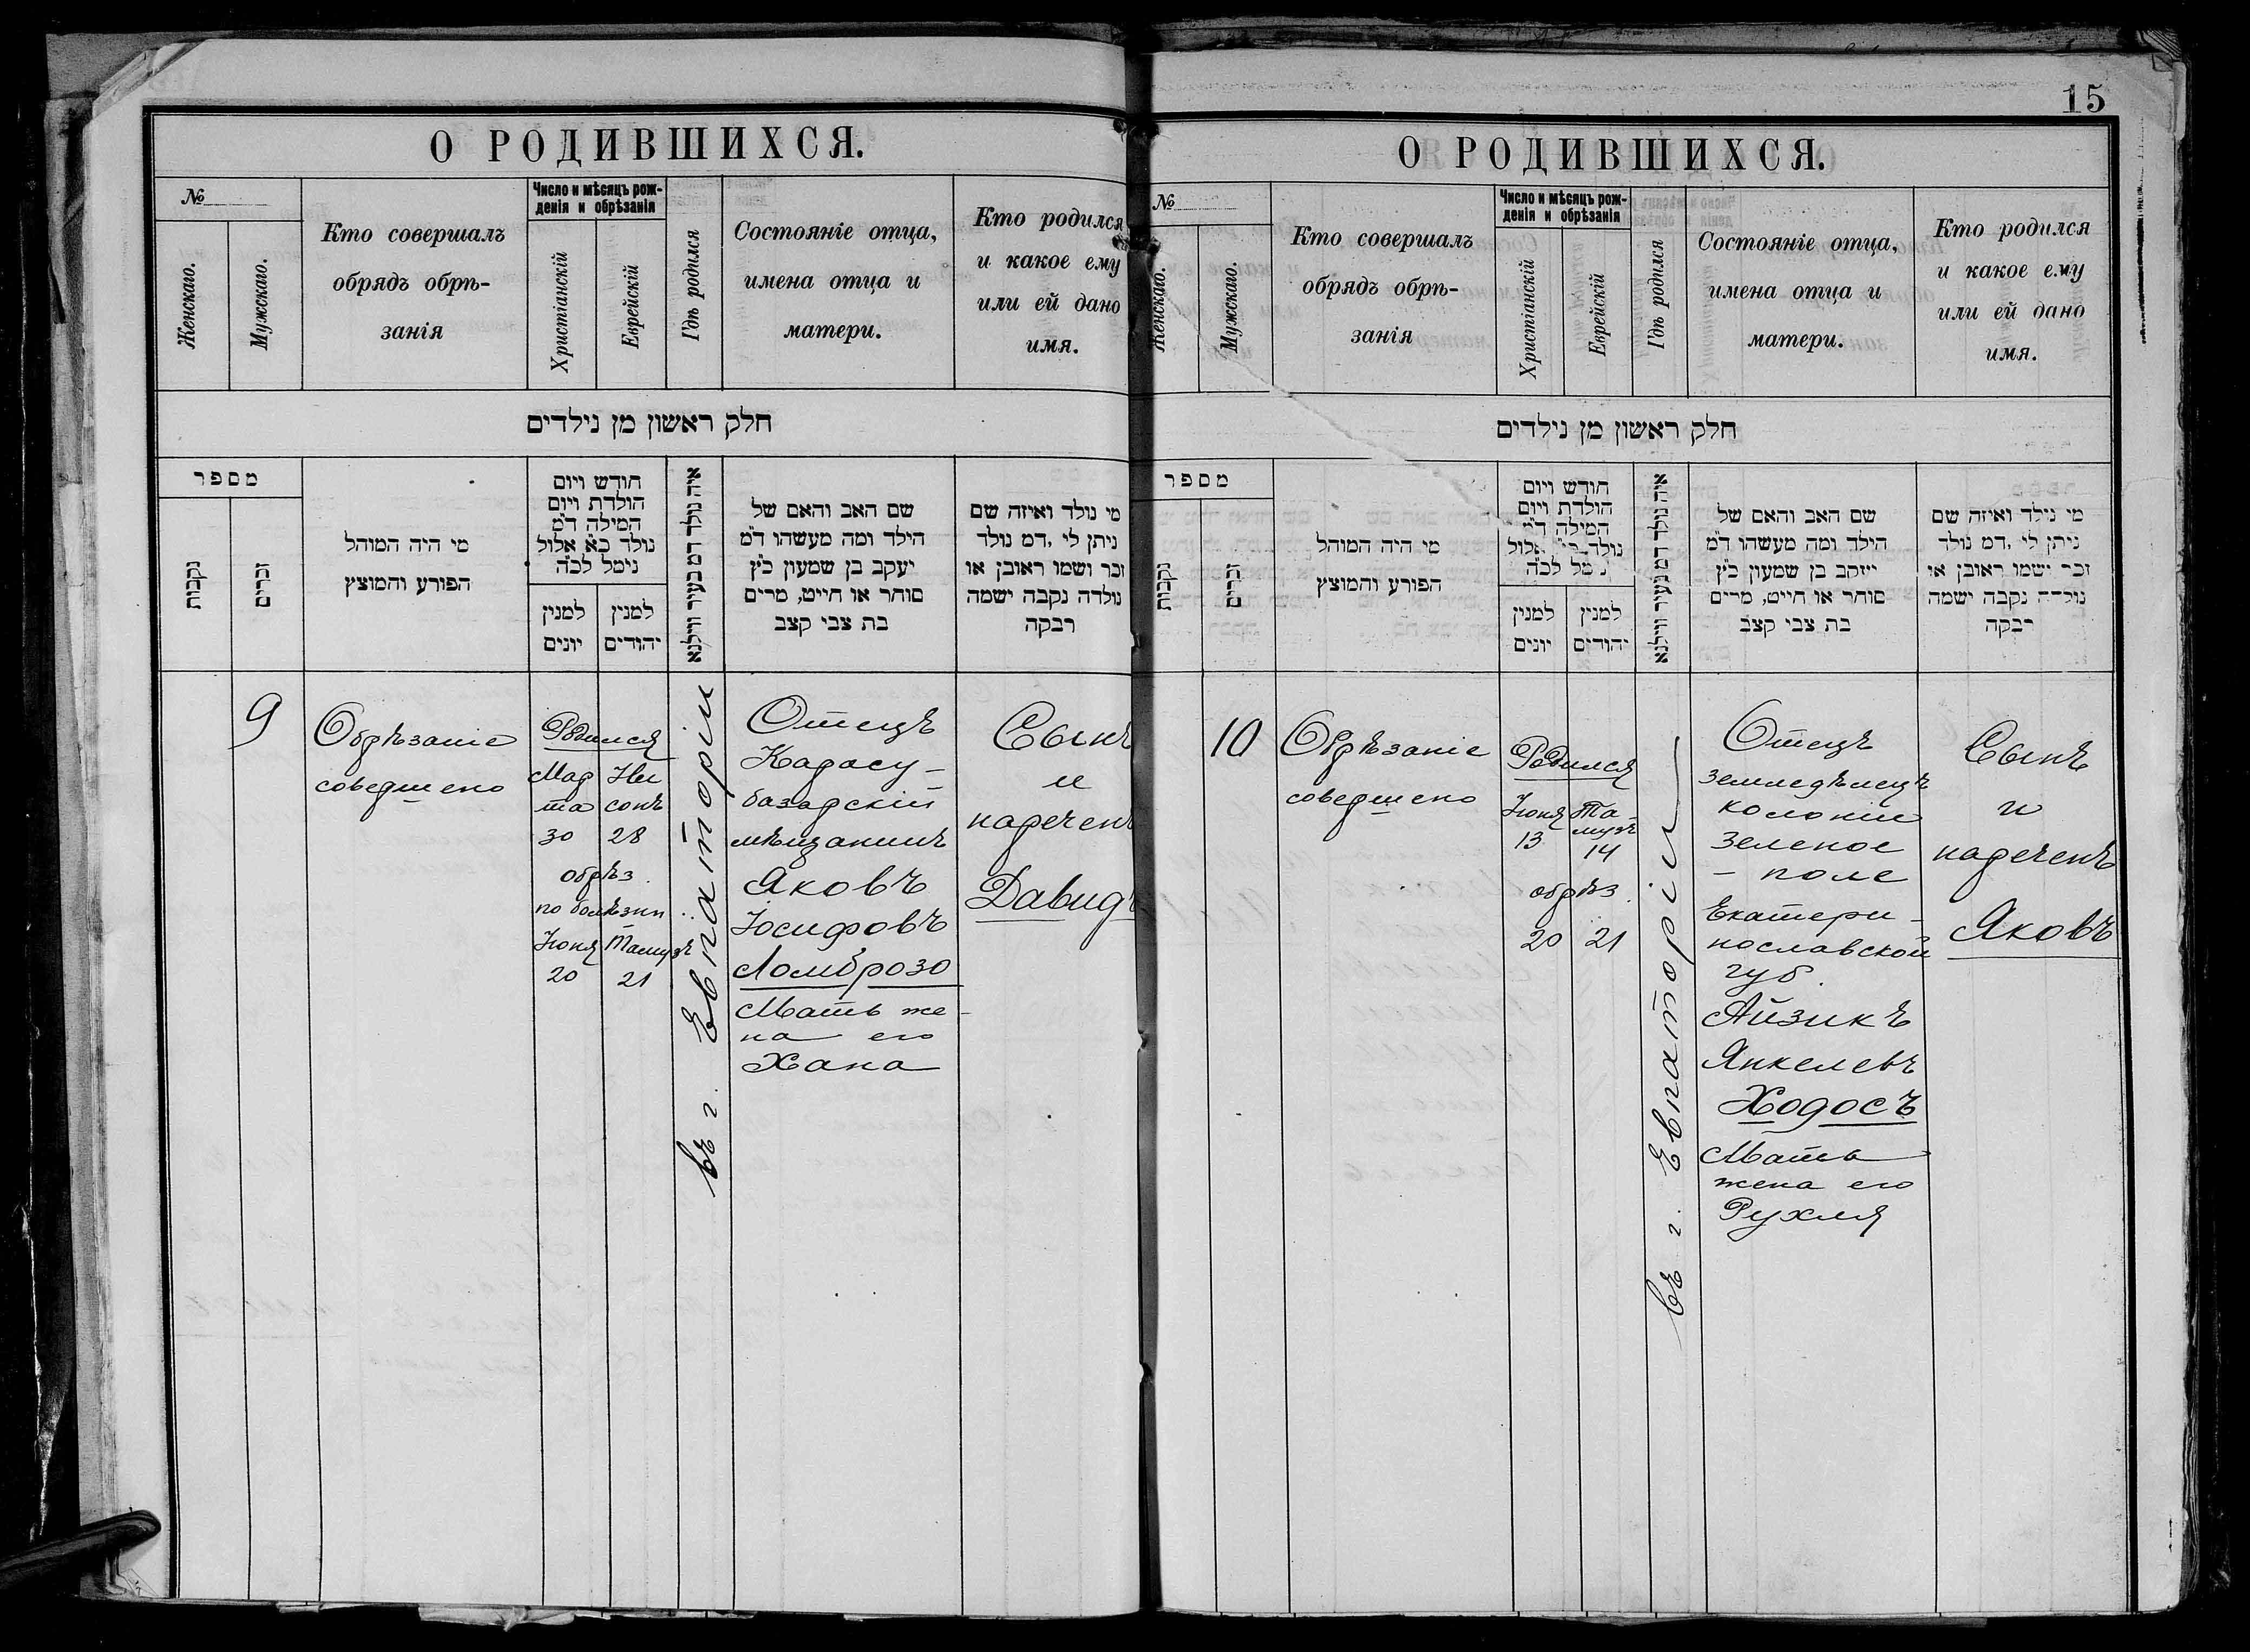 О РОДИВШИХСЯ.
№
Женскаго.
Мужскаго.
Кто совершалъ
обрядъ обрѣ-
занія
Число и мѣсяцъ рож-
денія и обрѣзанія
Христіанскій
Еврейскій
Гдѣ родился
Состояніе отца,
имена отца и
матери.
Кто родился
и какое ему
или ей дано
имя.
חלק ראשון מן נילדים
מספר
נקבות
זכרים
מי היה המוהל
הפורע והמוצץ
חודש ויום
הולדת ויום
המילה ד״מ
נולד כ״א אלול
נימל לכ״ה
למנין
יונים
למנין
יהודים
איה נולד דמ בעיר ווילנא
שם האב והאם של
הילד ומה מעשהו ד״מ
יעקב בן שמעון כ״ץ
סוחר או חייט, מרים
בת צבי קצב
מי נולד ואיזה שם
ניתן לי, דמ נולד
זכר ושמו ראובן או
נולדה נקבה ישמה
רבקה
9
Обрѣзаніе
совершено
Родился
Мар
та
30
Ни
сонъ
28
обрѣз.
по болѣзни
Іюня
20
Тамузъ
21
въ г. Евпаторіи
Отецъ
Карасу-
базарскій
мѣщанинъ
Яковъ
Іосифовъ
Ломброзо
Мать же-
на его
Хана
Сынъ
и
нареченъ
Давидъ
15
О РОДИВШИХСЯ.
№
Женскаго.
Мужскаго.
Кто совершалъ
обрядъ обрѣ-
занія
Число и мѣсяцъ рож-
денія и обрѣзанія
Христіанскій
Еврейскій
Гдѣ родился
Состояніе отца,
имена отца и
матери.
Кто родился
и какое ему
или ей дано
имя.
חלק ראשון מן נילדים
מספר
נקבות
זכרים
מי היה המוהל
הפורע והמוצץ
חודש ויום
הולדת ויום
המילה ד״מ
נולד כ״א אלול
נימל לכ״ה
למנין
יונים
למנין
יהודים
איה נולד דמ בעיר ווילנא
שם האב והאם של
הילד ומה מעשהו ד״מ
יעקב בן שמעון כ״ץ
סוחר או חייט, מרים
בת צבי קצב
מי נילד ואיזה שם
ניתן לי, דמ נולד
זכר ישמו ראובן או
נולדה נקבה ישמה
רבקה
10
Обрѣзаніе
совершено
Родился
Іюня
13
Та-
музъ
14
обрѣз.
20
21
въ г. Евпаторіи
Отецъ
земледѣлецъ
колоніи
Зеленое
- поле
Екатери-
нославской
губ.
Айзикъ
Янкелевъ
Ходосъ
Мать
жена его
Рухля
Сынъ
и
нареченъ
Яковъ